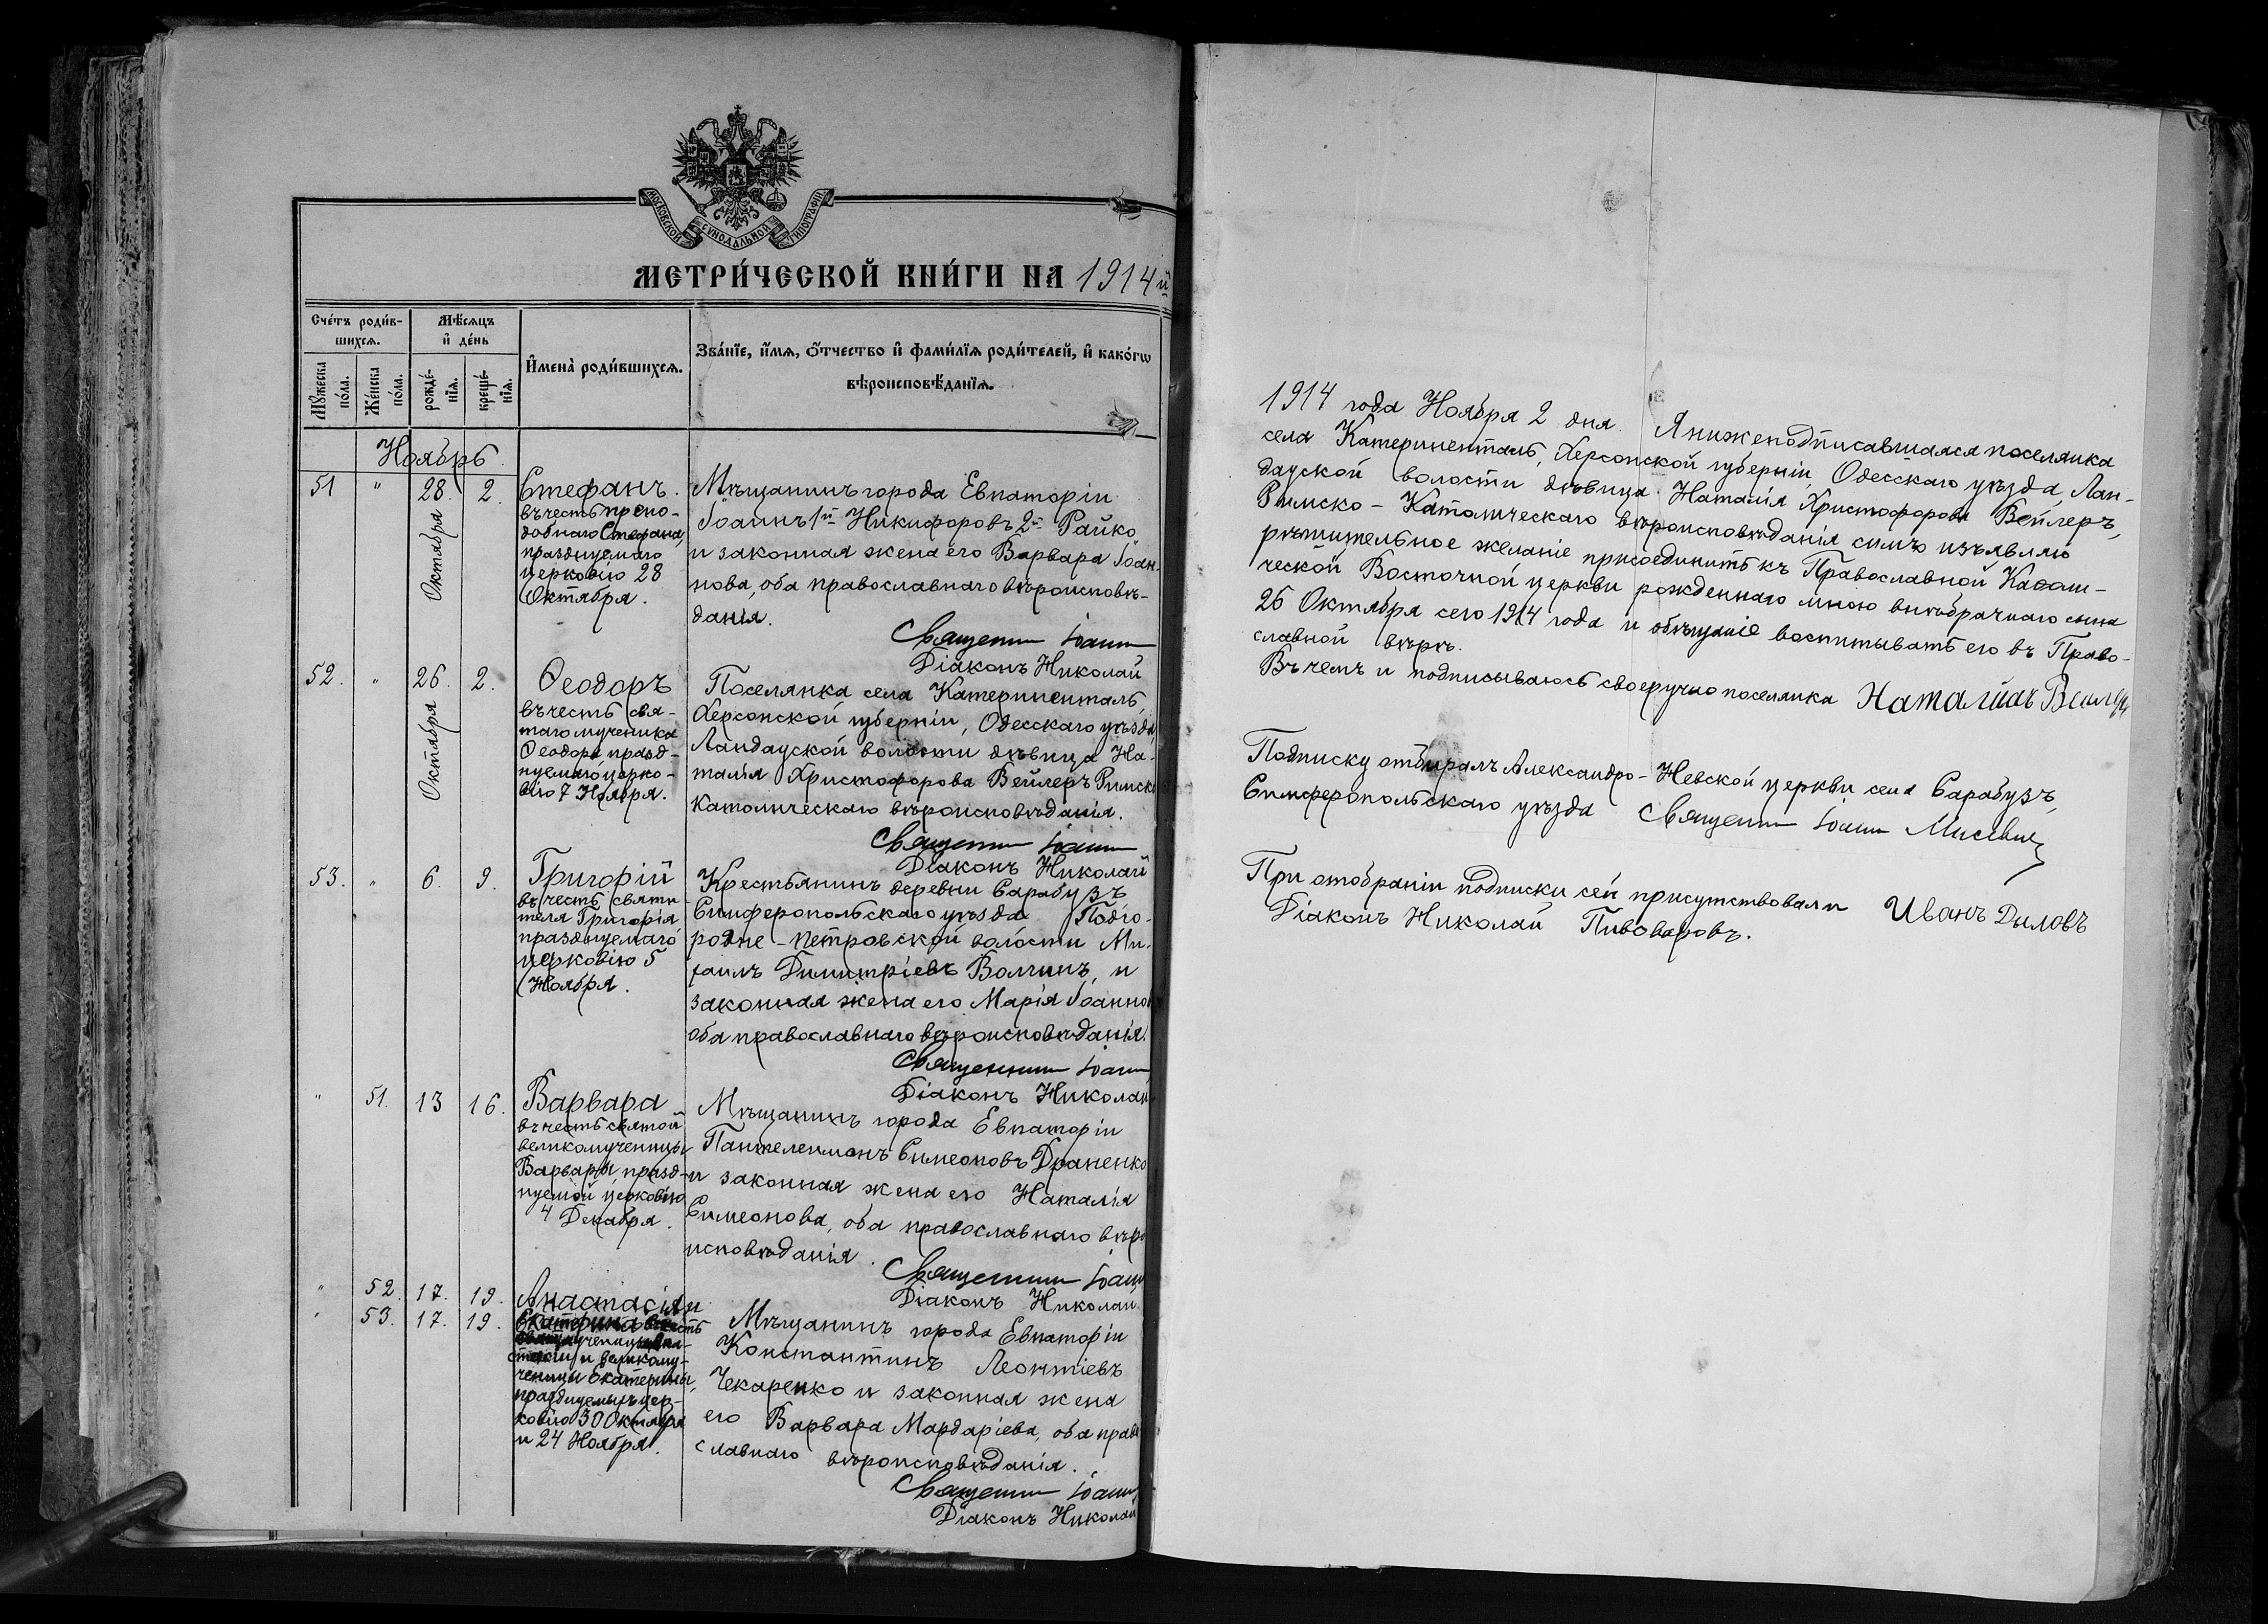 МОСКОВСКОЙ СУНОДАЛЬНОЙ ТИПОГРАФІИ
МЕТРИ́ЧЕСКОЙ КНИ́ГИ НА 1914 й
Сче́тъ роди́в-
шихсѧ.
Мѣ́сѧцъ
и҆ де́нь
Мꙋ́жеска
по́ла.
Же́нска
по́ла.
рожде́-
нїѧ.
креще́-
нїѧ.
И҆мена̀ роди́вшихсѧ.
Зва́нїе, и҆́мѧ, ѻ҆́тчество и҆ фами́лїѧ роди́телей, и҆ како́гѡ
вѣроисповѣ́данїѧ.
Ноябрь
51 " 28. 2.
Октября
Стефанъ.
въ честь препо-
добнаго Стефана,
празднуемаго
церковію 28
Октября.
Мѣщанинъ города Евпаторіи
Іоаннъ 1й Никифоровъ 2й Райко
и законная жена его Варвара Іоан-
нова, оба православнаго вѣроисповѣ-
данія.
Священник Іоанн
Діаконъ Николай
52. " 26. 2.
Октября
Ѳеодоръ
въ честь свя-
таго мученика
Ѳеодора, празд-
нуемаго церко-
вію 7 Ноября.
Поселянка села Катериненталь,
Херсонской губерніи, Одесскаго уѣзда,
Ландауской волости дѣвица На-
талія Христофорова Вейлеръ Римско
Католическаго вѣроисповѣданія.
Священник Іоанн
Діаконъ Николай
53. " 6. 9.
Григорій
въ честь святи-
теля Григорія
празднуемаго
церковію 5
Ноября.
Крестьянинъ деревни Сарабузъ
Симферопольскаго уѣзда Подго-
родне-Петровской волости Ми-
хаилъ Димитріевъ Волчинъ, и
законная жена его Марія Іоаннов
оба православнаго вѣроисповѣданія.
Священник Іоанн
Діаконъ Николай
" 51. 13 16.
Варвара
въ честь святой
великомученицы
Варвары, празд-
нуемой церковію
4 Декабря.
Мѣщанинъ города Евпаторіи
Пантелеимонъ Симеоновъ Драненко
и законная жена его Наталія
Симеонова, оба православнаго вѣро
исповѣданія.
Священник Іоанн
Діаконъ Николай
" 52. 17. 19.
" 53. 17. 19.
Анастасія и
Екатерина честь
мученицы Ана-
стасіи и великому-
ченицы Екатерины,
празднуемыхъ цер-
ковію 30 Октября
и 24 Ноября.
Мѣщанинъ города Евпаторіи
Константинъ Леонтіевъ
Чекаренко и законная жена
его Варвара Мардаріева, оба право
славнаго вѣроисповѣданія.
Священник Іоанн
Діаконъ Николай
1914 года Ноября 2 дня. Я нижеподписавшаяся поселянка
села Катериненталь, Херсонской губерніи, Одесскаго уѣзда, Лан-
дауской волости дѣвица Наталія Христофорова Вейлеръ,
Римско-Католическаго вѣроисповѣданія симъ изъявляю
рѣшительное желаніе присоединить къ Православной Каѳоли-
ческой Восточной церкви рожденнаго мною внѣбрачнаго сына
26 Октября сего 1914 года и обѣщаніе воспитывать его въ Право-
славной вѣрѣ.
Въ чемъ и подписываюсь своеручно поселянка Наталія Вейлеръ
Подписку отбиралъ Александро-Невской церкви села Сарабузъ,
Симферопольскаго уѣзда Священник Іоанн Мисевич
При отобраніи подписки сей присутствовали Иванъ Дыловъ
Діаконъ Николай Пивоваровъ.